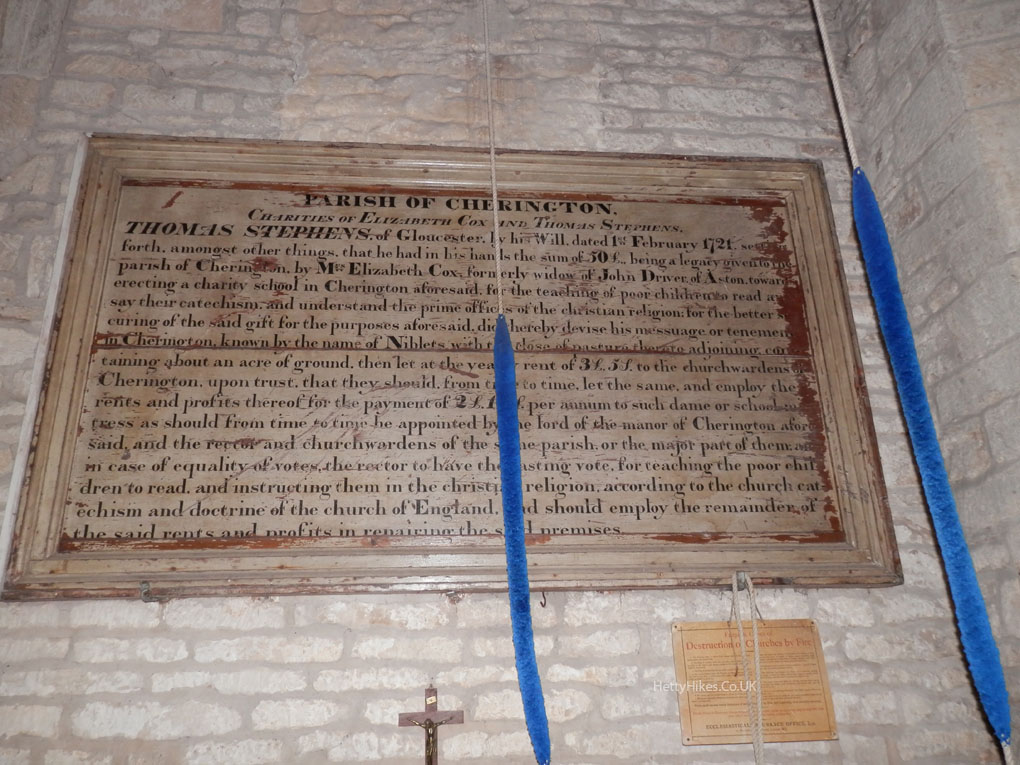 PARISH OF CHERINGTON.
CHARITIES OF ELIZABETH COX AND THOMAS STEPHENS.
THOMAS STEPHENS, of Gloucester, by his Will, dated 1st February 1721, setting
forth, amongst other things, that he had in his hands the sum of 50£., being a legacy given to the
parish of Cherington, by Mrs Elizabeth Cox, formerly widow of John Driver, of Aston, toward
erecting a charity school in Cherington aforesaid, for the teaching of poor children to read a
say their catechism, and understand the prime offices of the christian religion; for the better
curing of the said gift for the purposes aforesaid, did hereby devise his messuage or tenement
in Cherington, known by the name of Niblets, with the close of pasture thereto adjoining, con
taining about an acre of ground, then let at the yearly rent of 3£. 5s. to the churchwardens of
Cherington, upon trust, that they should, from time to time, let the same, and employ the
rents and profits thereof for the payment of 2£. per annum to such dame or school mis
tress as should from time to time be appointed by the lord of the manor of Cherington afore
said, and the rector and churchwardens of the same parish, or the major part of them, and
in case of equality of votes, the rector to have the casting vote, for teaching the poor chil
dren to read, and instructing them in the christian religion, according to the church cat-
echism and doctrine of the church of England, and should employ the remainder of
the said rents and profits in repairing the said premises.
Destruction of Churches by Fire
HettyHikes.Co.UK